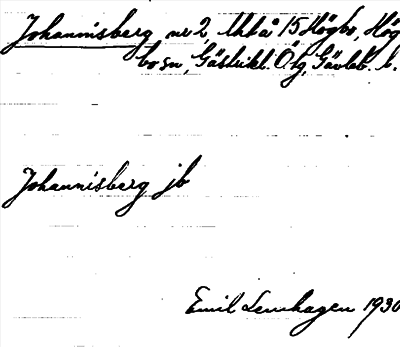 Johannisberg nr 2, Uhtå 15 Högbo, Hög
bo sn, Gästrikl. Ö. tg, Gävleb. l.
Johannisberg jb
Emil Lenhagen 1930